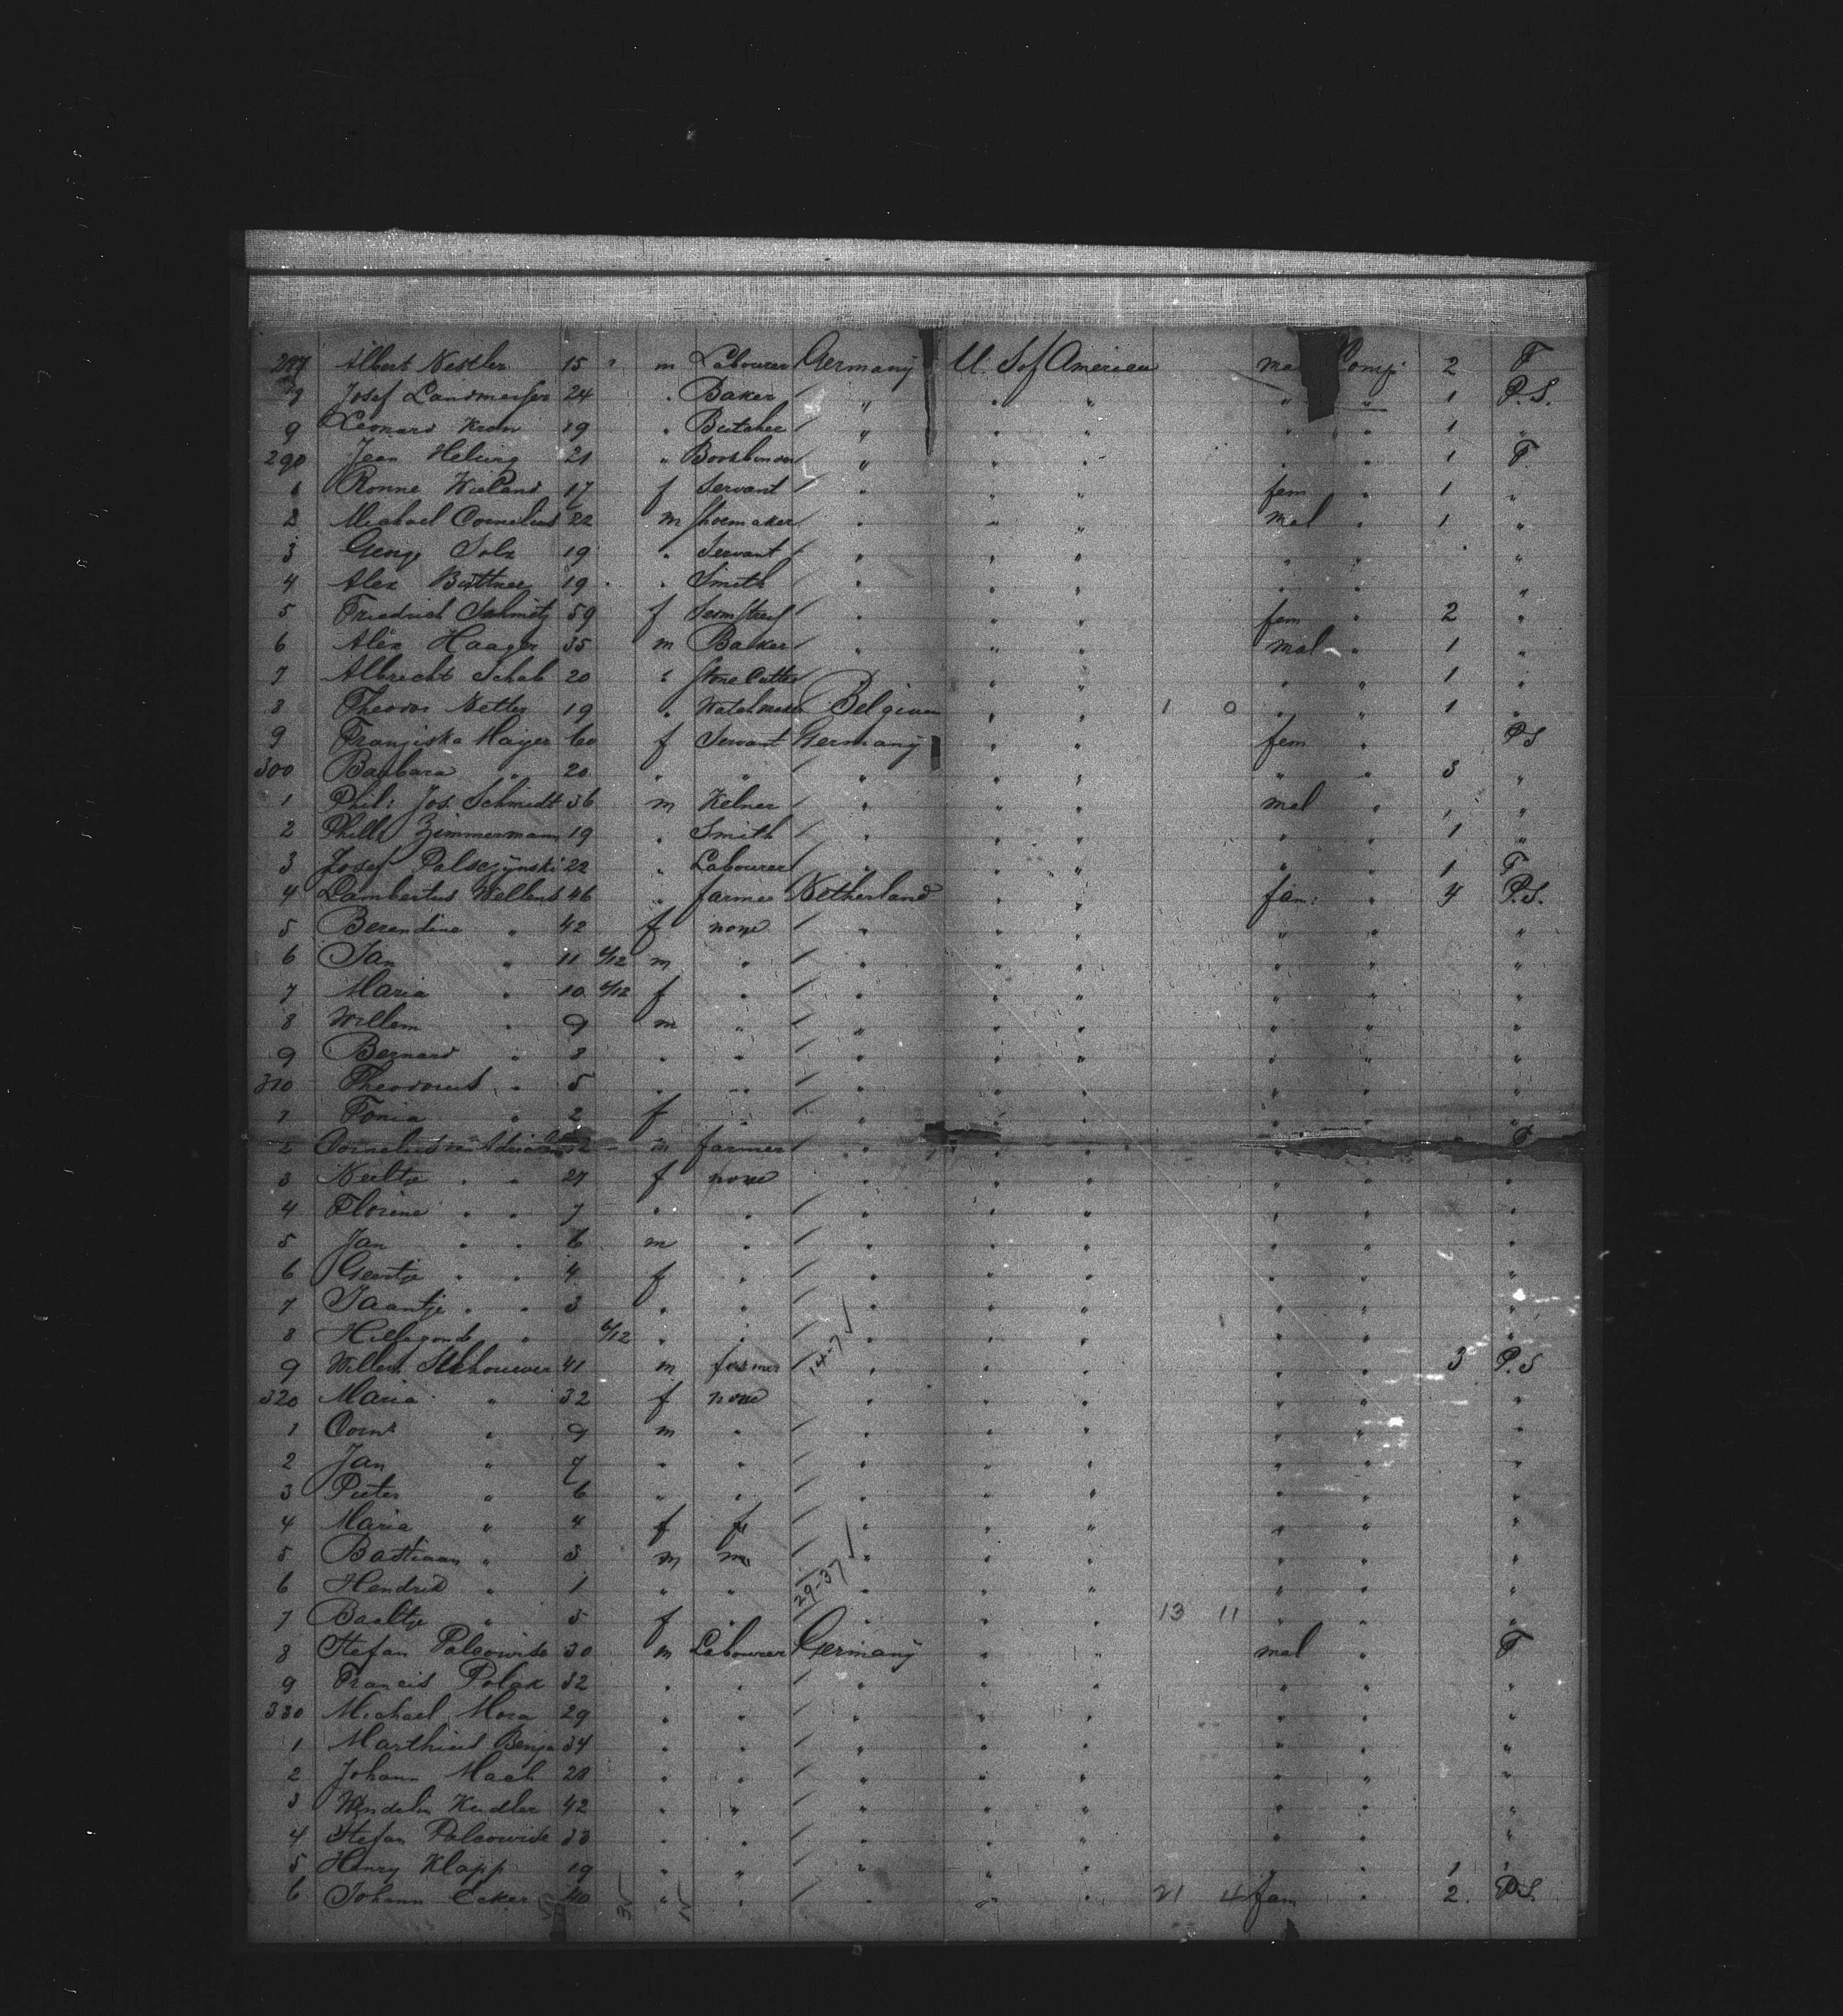 287 Albert Nestler 15 " m Labourer Germany U. S of America ma Comp: 2 T
Josef Landmesser 24 " Baker " " " " " 1 P.S.
9 Leonard Kron 19 " Butcher " " " " " 1 "
290 Jean Helwig 21 " " " " " " 1 T
1 Ronne Wieland 17 f Servant " " " fem " 1 "
2 Michael Cornelius 22 m Shoemaker " " " mal " 1 "
3 Georg Solz 19 " Servant " " " " " "
4 Alex Buttner 19 " Smith " " " " " "
5 Friedrich Schmitz 59 f " " " fem " 2 "
6 Alex Haager 35 m Baker " " " mal " 1 "
7 Albrecht Schab 20 " Stone Cutter " " " " 1 "
8 Theodor Netter 19 " Watchmaker Belgium " " 1 0 " " 1 "
9 Franziska Mayer 60 f Servant Germany " " fem " P.S
300 Barbara " 20 " " " " " " " 3 "
1 Phil: Jos. Schmidt 36 m Kelner " " " mal " 1 "
2 Zimmermann 19 " Smith " " " " " 1 "
3 Josef Palsczynski 22 " Labourer " " " " " 1 T
4 Lambertus Wellens 46 " farmer Netherland " " fam: " 4 P.S.
5 Berendine " 42 f none " " " " " "
6 Jan " 11 6/12 m " " " " " " "
7 Maria " 10 6/12 f " " " " " " "
8 Willem " 9 m " " " " " " "
9 Bernard " 8 " " " " " " " "
310 Theodorus " 5 " " " " " " " "
1 Tonia " 2 f " " " " " " "
2 Cornelius m farmer " " " " " T
3 Neeltje " " 27 f none " " " " " "
4 Florine " " 7 " " " " " " " "
5 Jan " " 6 m " " " " " " "
6 Geertje " " 4 f " " " " " " "
7 Jaantje " " 3 " " " " " " " "
8 Hillegond " 6/12 " " " " " " " "
9 Willem 41 m farmer 14-7 " " " " " 3 P.S
320 Maria " 32 f none " " " " " "
1 Corns " 9 m " " " " " " "
2 Jan " 7 " " " " " " " "
3 Pieter " 6 " " " " " " " "
4 Maria " 4 f f " " " " " "
5 Bastiaan " 3 m m " " " " " "
6 Hendrik " 1 " " 29-37 " " " " " "
7 Baaltje " 5 f " " " " 13 11 " " "
8 Stefan Palcowisc 30 m Labourer Germany " " mal " T
9 Francis Polak 32 " " " " " " " "
330 Michael Mora 29 " " " " " " " "
1 Marthius Benja 34 " " " " " " " "
2 Johann Mach 28 " " " " " " " "
3 Wendelin Kudler 42 " " " " " " " "
4 Stefan Palcowisc 33 " " " " " " " "
5 Henry Klapp 19 " " " " " " " 1 "
6 Johann Ecker 40 " " " " " 21 4 fam " 2. P.S.